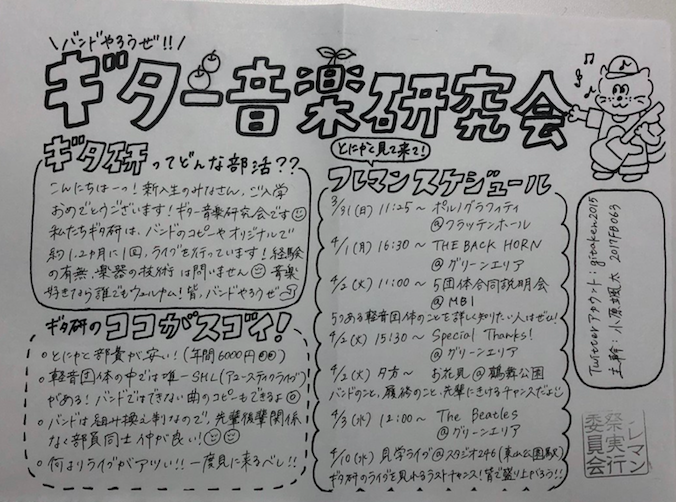 バンドやろうぜ!!
ギター音楽研究会
ギタ研ってどんな部活??
こんにちはーっ!新入生のみなさん、ご入学
おめでとうございます!ギター音楽研究会です
私たちギタ研は、バンドのコピーやオリジナルで
約1、2ヵ月に1回、ライブを行っています!経験
の有無、楽器の技術は問いません 音楽
好きなら誰でもウェルカム!皆、バンドやろうぜ
ギタ研のココがスゴイ!
○とにかく部費が安い!(年間6000円)
○軽音団体の中では唯一SHL(アコースティックライブ)
がある!バンドではできない曲のコピーもできるよ
○バンドは組み換え制なので、先輩後輩関係
なく部員同士仲が良い!
○何よりライブがアツい!!一度見に来るべし!!
とにかく見て来て!
フレマンスケジュール
3/31(日) 11:25~ ポルノグラフィティ
@フラッテンホール
4/1(月) 16:30~ THE BACK HORN
@グリーンエリア
4/2(火) 11:00~ 5団体合同説明会
@MB1
5つある軽音団体のことを詳しく知りたい人はぜひ!
4/2(火) 15:30~ Special Thanks!
@グリーンエリア
4/2(火) 夕方~ お花見@鶴舞公園
バンドのこと、履修のこと、先輩にきけるチャンスだよ
4/3(水) 12:00~ The Beatles
@グリーンエリア
4/10(水) 見学ライブ@スタジオ246(東山公園駅)
ギタ研のライブを見れるラストチャンス!皆で盛り上がろう!!
Twitterアカウント:gitaken2015
主幹:小原颯太 2017FB063
レマン
祭実行
委員会